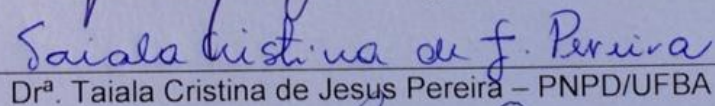 Taiala Cristina de J. Pereira
Drª. Taiala Cristina de Jesus Pereira – PNPD/UFBA